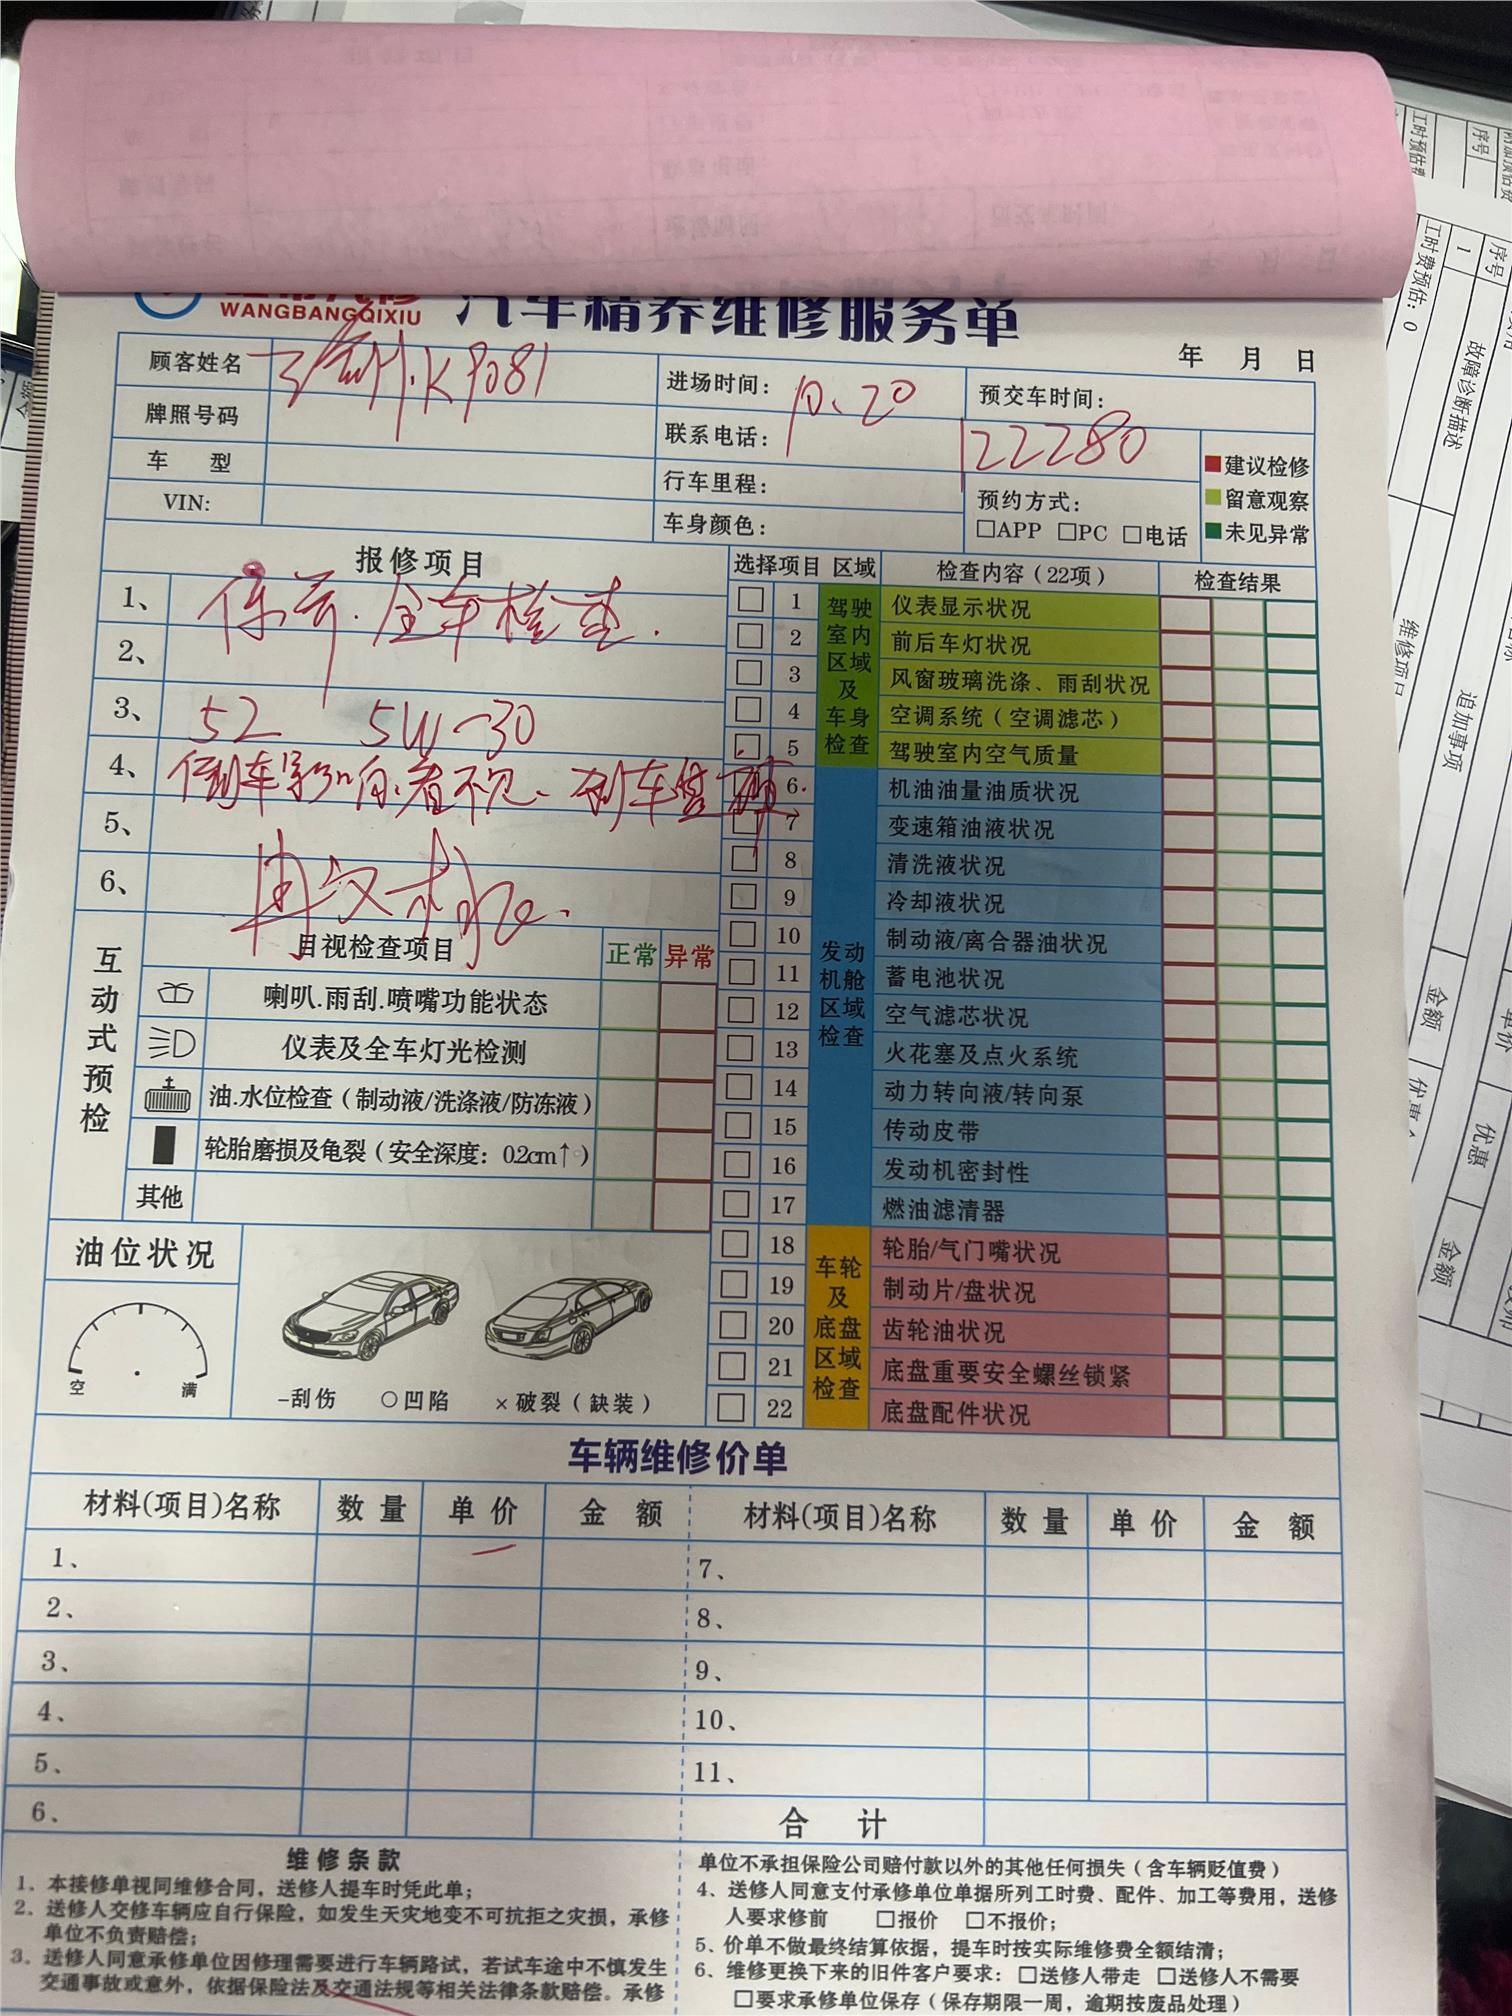 WANGBANGQIXIU
汽车精养维修服务单
年 月 日
顾客姓名
K9081
进场时间: 10.20
预交车时间:
牌照号码
联系电话:
122280
车 型
行车里程:
预约方式:
□APP □PC □电话
VIN:
车身颜色:
建议检修
留意观察
未见异常
报修项目
1、保养.全车检查.
2、
3、 52 5W-30
4、倒车影响看不见、刹车
5、
6、
选择项目 区域 检查内容(22项) 检查结果
驾驶室内区域及车身检查
1 仪表显示状况
2 前后车灯状况
3 风窗玻璃洗涤、雨刮状况
4 空调系统(空调滤芯)
5 驾驶室内空气质量
发动机舱区域检查
6 机油油量油质状况
7 变速箱油液状况
8 清洗液状况
9 冷却液状况
10 制动液/离合器油状况
11 蓄电池状况
12 空气滤芯状况
13 火花塞及点火系统
14 动力转向液/转向泵
15 传动皮带
16 发动机密封性
17 燃油滤清器
车轮及底盘区域检查
18 轮胎/气门嘴状况
19 制动片/盘状况
20 齿轮油状况
21 底盘重要安全螺丝锁紧
22 底盘配件状况
互动式预检
目视检查项目 正常 异常
喇叭.雨刮.喷嘴功能状态
仪表及全车灯光检测
油.水位检查(制动液/洗涤液/防冻液)
轮胎磨损及龟裂(安全深度: 0.2cm↑)
其他
油位状况
空 满
-刮伤 ○凹陷 ×破裂(缺装)
车辆维修价单
材料(项目)名称 数量 单价 金额 材料(项目)名称 数量 单价 金额
1、 7、
2、 8、
3、 9、
4、 10、
5、 11、
6、 合 计
维修条款
1、本接修单视同维修合同,送修人提车时凭此单;
2、送修人交修车辆应自行保险,如发生天灾地变不可抗拒之灾损,承修
单位不负责赔偿;
3、送修人同意承修单位因修理需要进行车辆路试,若试车途中不慎发生
交通事故或意外,依据保险法及交通法规等相关法律条款赔偿。承修
单位不承担保险公司赔付款以外的其他任何损失(含车辆贬值费)
4、送修人同意支付承修单位单据所列工时费、配件、加工等费用,送修
人要求修前 □报价 □不报价;
5、价单不做最终结算依据,提车时按实际维修费全额结清;
6、维修更换下来的旧件客户要求: □送修人带走 □送修人不需要
□要求承修单位保存(保存期限一周,逾期按废品处理)
序号 故障诊断描述
1
工时费预估: 0
追加事项
金额
优惠
金额